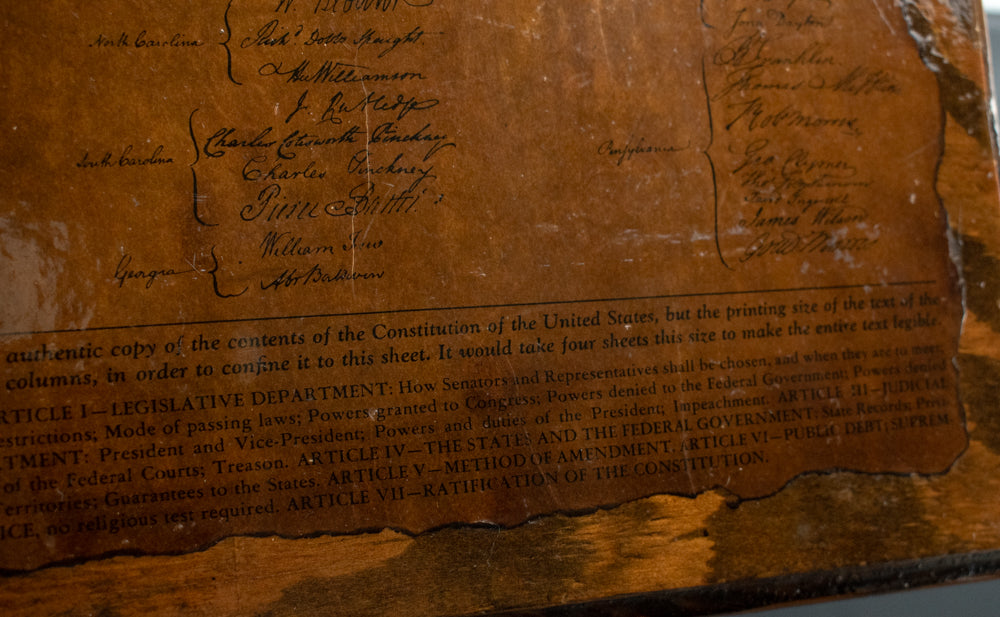 W. Blount
North Carolina
Richd Dobbs Spaight.
Hu Williamson
J. Rutledge
South Carolina
Charles Cotesworth Pinckney
Charles Pinckney
Pierce Butler.
Georgia
William Few
Abr Baldwin
Jona Dayton
B Franklin.
Thomas Mifflin
Robt Morris
Pensylvania
Geo Clymer
James Wilson
Gouv Morris
authentic copy of the contents of the Constitution of the United States, but the printing size of the text of the
columns, in order to confine it to this sheet. It would take four sheets this size to make the entire text legible.
ARTICLE I—LEGISLATIVE DEPARTMENT: How Senators and Representatives shall be chosen, and when they are to meet;
estrictions; Mode of passing laws; Powers granted to Congress; Powers denied to the Federal Government; Powers denied
RTMENT: President and Vice-President; Powers and duties of the President; Impeachment. ARTICLE III—JUDICIAL
of the Federal Courts; Treason. ARTICLE IV—THE STATES AND THE FEDERAL GOVERNMENT: State Records; Privi
Territories; Guarantees to the States. ARTICLE V—METHOD OF AMENDMENT. ARTICLE VI—PUBLIC DEBT; SUPREM-
ICE, no religious test required. ARTICLE VII—RATIFICATION OF THE CONSTITUTION.